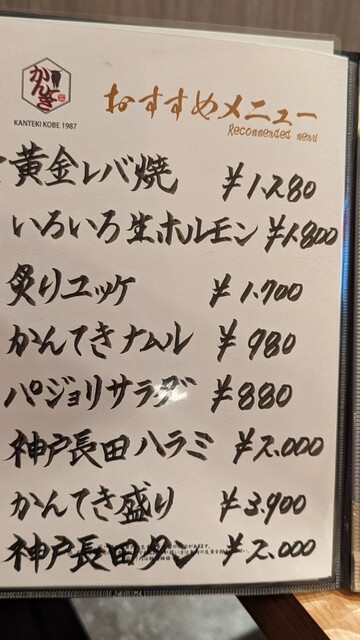 かんてき
KANTEKI KOBE 1987
おすすめメニュー
Recommended menu
黄金レバ焼 ¥1,280
いろいろ生ホルモン ¥1,800
炙りユッケ ¥1,700
かんてきナムル ¥980
パジョリサラダ ¥880
神戸長田ハラミ ¥2,000
かんてき盛り ¥3,900
神戸長田タン ¥2,000